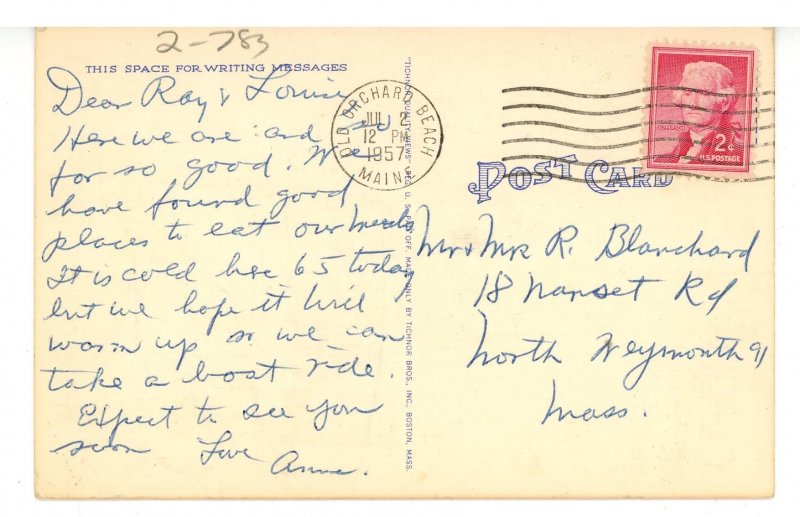 2-783
THIS SPACE FOR WRITING MESSAGES
Dear Ray & Louise
Here we are and so
far so good. We
have found good
places to eat our meals
It is cold here 65 today
but we hope it will
warm up so we can
take a boat ride.
Expect to see you
soon Love Anne.
OLD ORCHARD BEACH
JUL 2
12 PM
1957
MAINE
JEFFERSON
2¢
U.S. POSTAGE
POST CARD
Mr & Mrs R. Blanchard
18 Nanset Rd
North Weymouth 91
Mass.
"TICHNOR QUALITY VIEWS" REG. U. S. PAT. OFF. MADE ONLY BY TICHNOR BROS., INC., BOSTON, MASS.